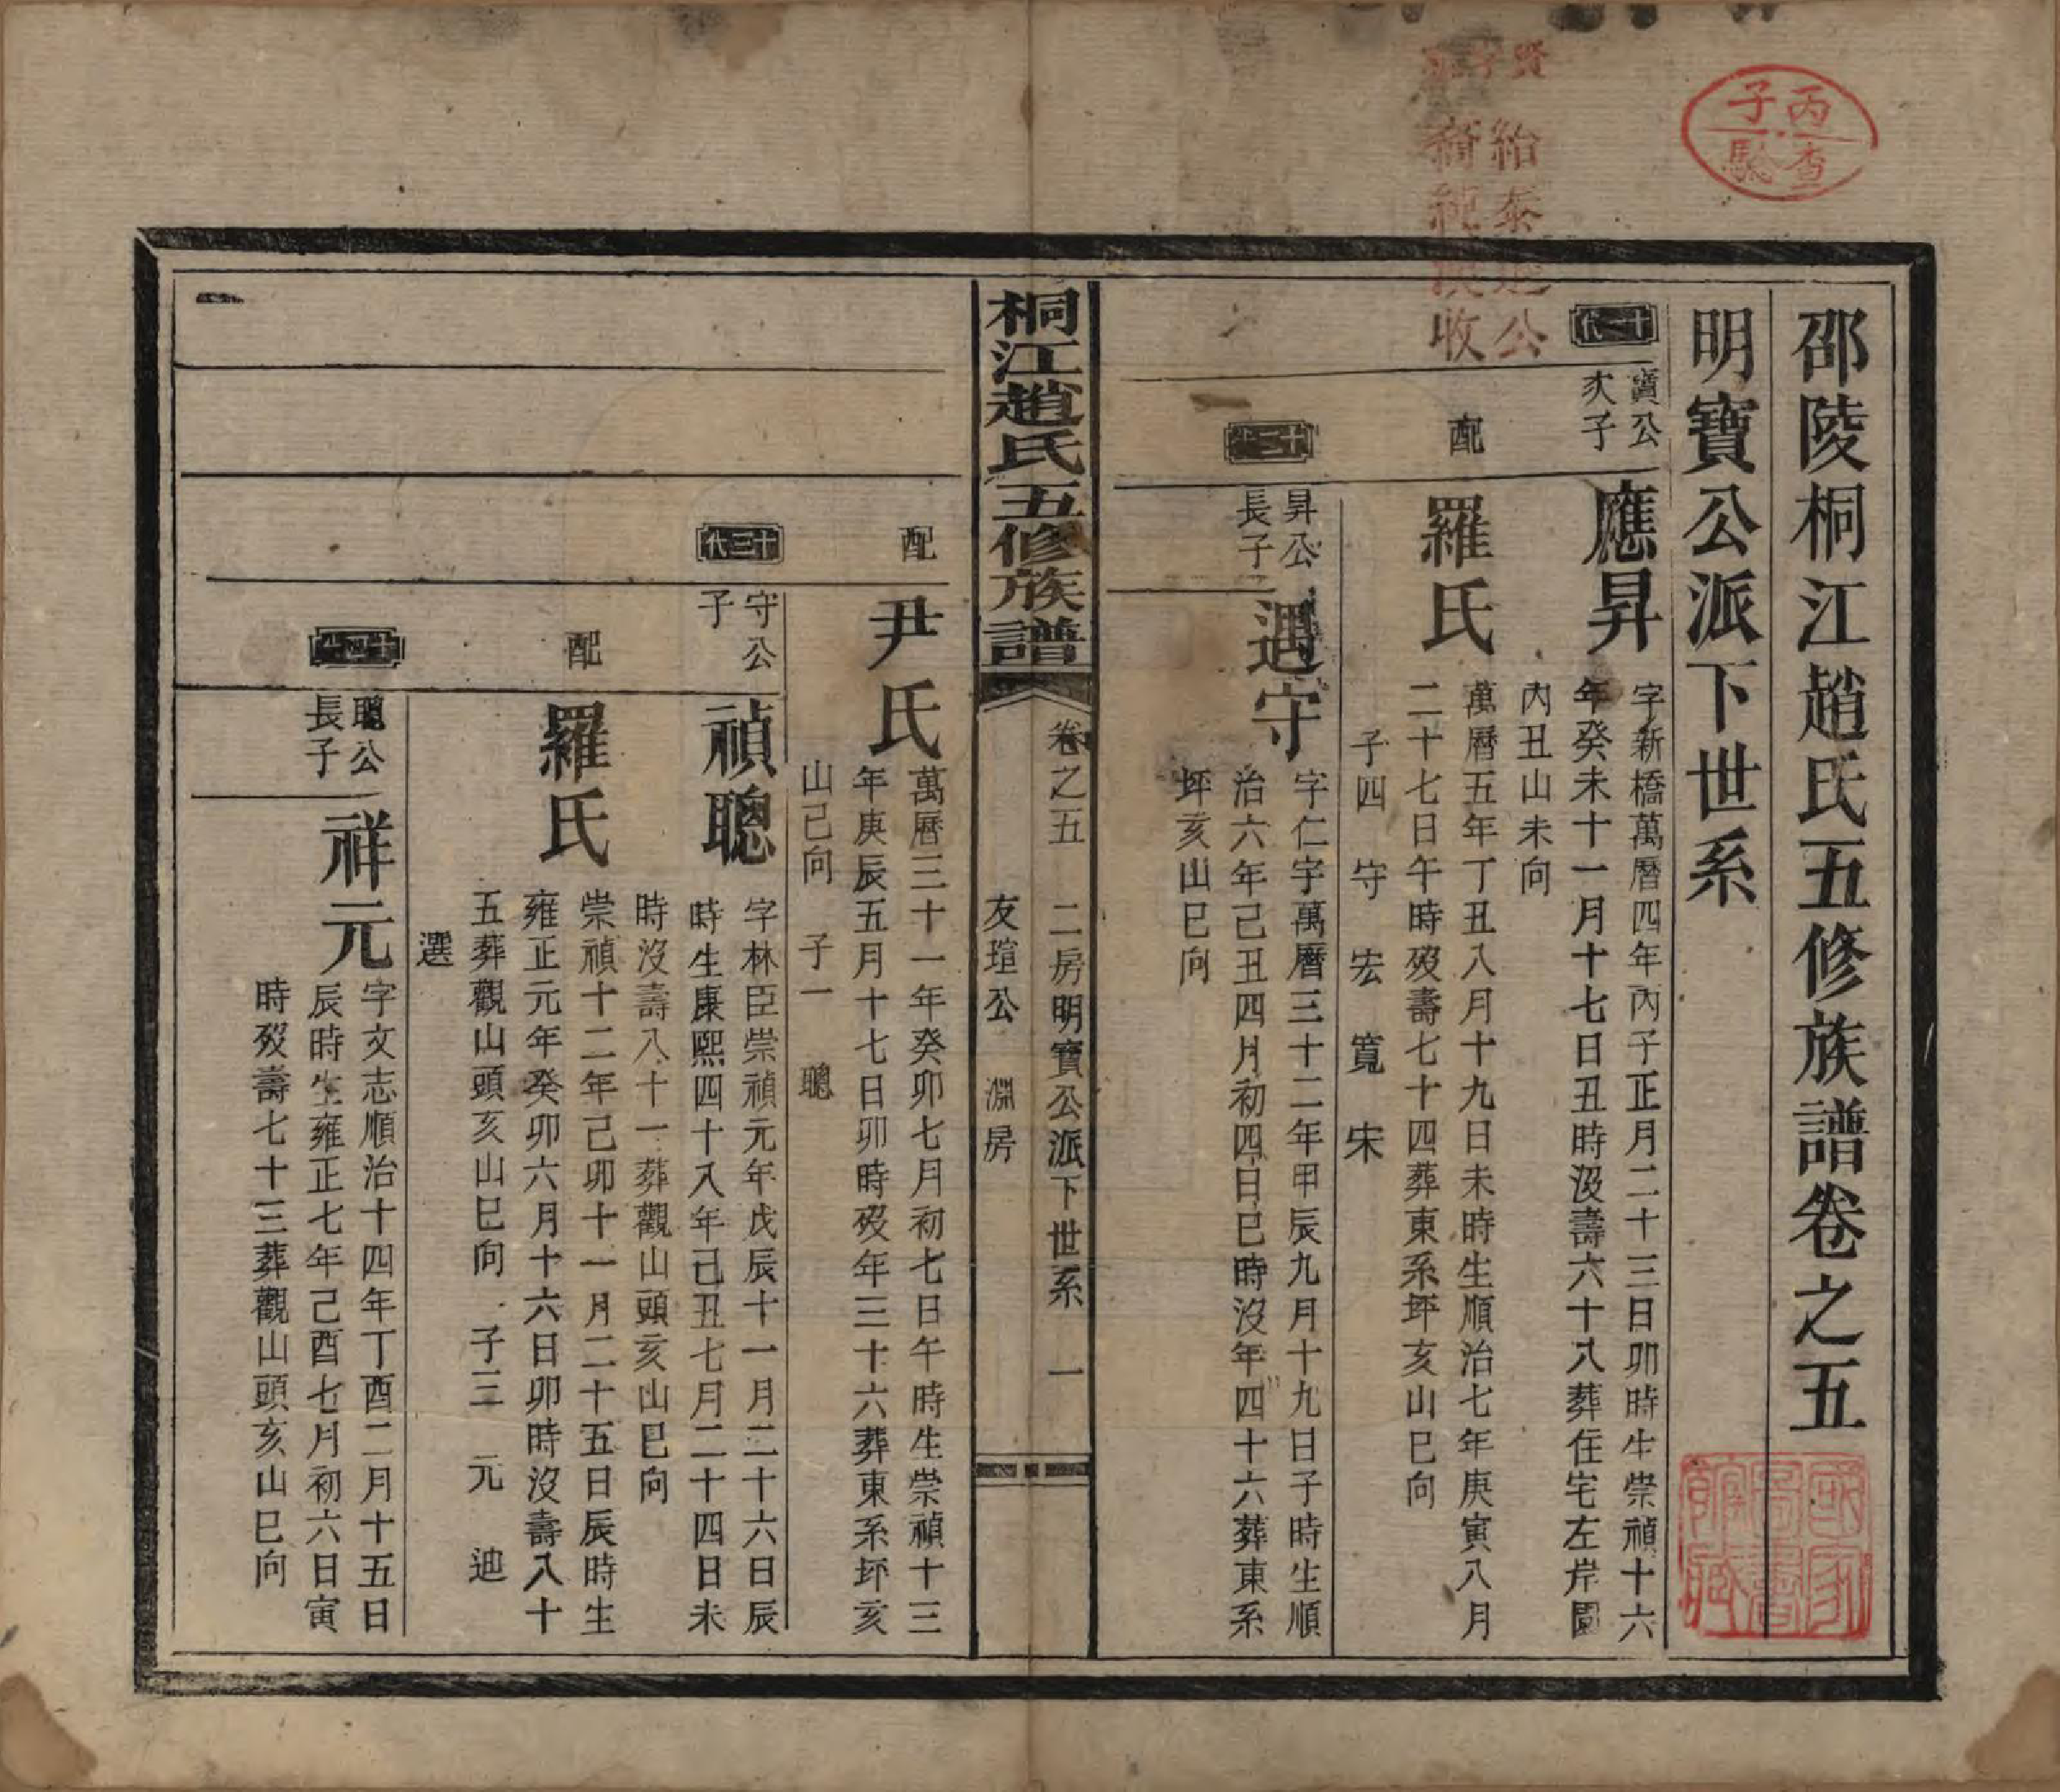 丙子
查驗
賢
紿泰公
收
邵陵桐江趙氏五修族譜卷之五
明寶公派下世系
十一代
寶公
次子
應昇
字新橋萬曆四年丙子正月二十三日卯時生崇禎十六
年癸未十一月十七日丑時沒壽六十八葬住宅左岸園
內丑山未向
配
羅氏
萬曆五年丁丑八月十九日未時生順治七年庚寅八月
二十七日午時歿壽七十四葬東系坪亥山巳向
子四 守 宏 寬 宋
十二代
昇公
長子
遇守
字仁宇萬曆三十二年甲辰九月十九日子時生順
治六年己丑四月初四日巳時沒年四十六葬東系
坪亥山巳向
桐江趙氏五修族譜
卷之五 二房明寶公派下世系 一
友瑄公 淵房
配
尹氏
萬曆三十一年癸卯七月初七日午時生崇禎十三
年庚辰五月十七日卯時歿年三十六葬東系坪亥
山巳向 子一 聰
十三代
守公
子
禎聰
字林臣崇禎元年戊辰十一月二十六日辰
時生康熙四十八年己丑七月二十四日未
時沒壽八十一葬觀山頭亥山巳向
配
羅氏
崇禎十二年己卯十一月二十五日辰時生
雍正元年癸卯六月十六日卯時沒壽八十
五葬觀山頭亥山巳向 子三 元 迪
選
十四代
聰公
長子
祥元
字文志順治十四年丁酉二月十五日
辰時生雍正七年己酉七月初六日寅
時歿壽七十三葬觀山頭亥山巳向
國家圖書館藏